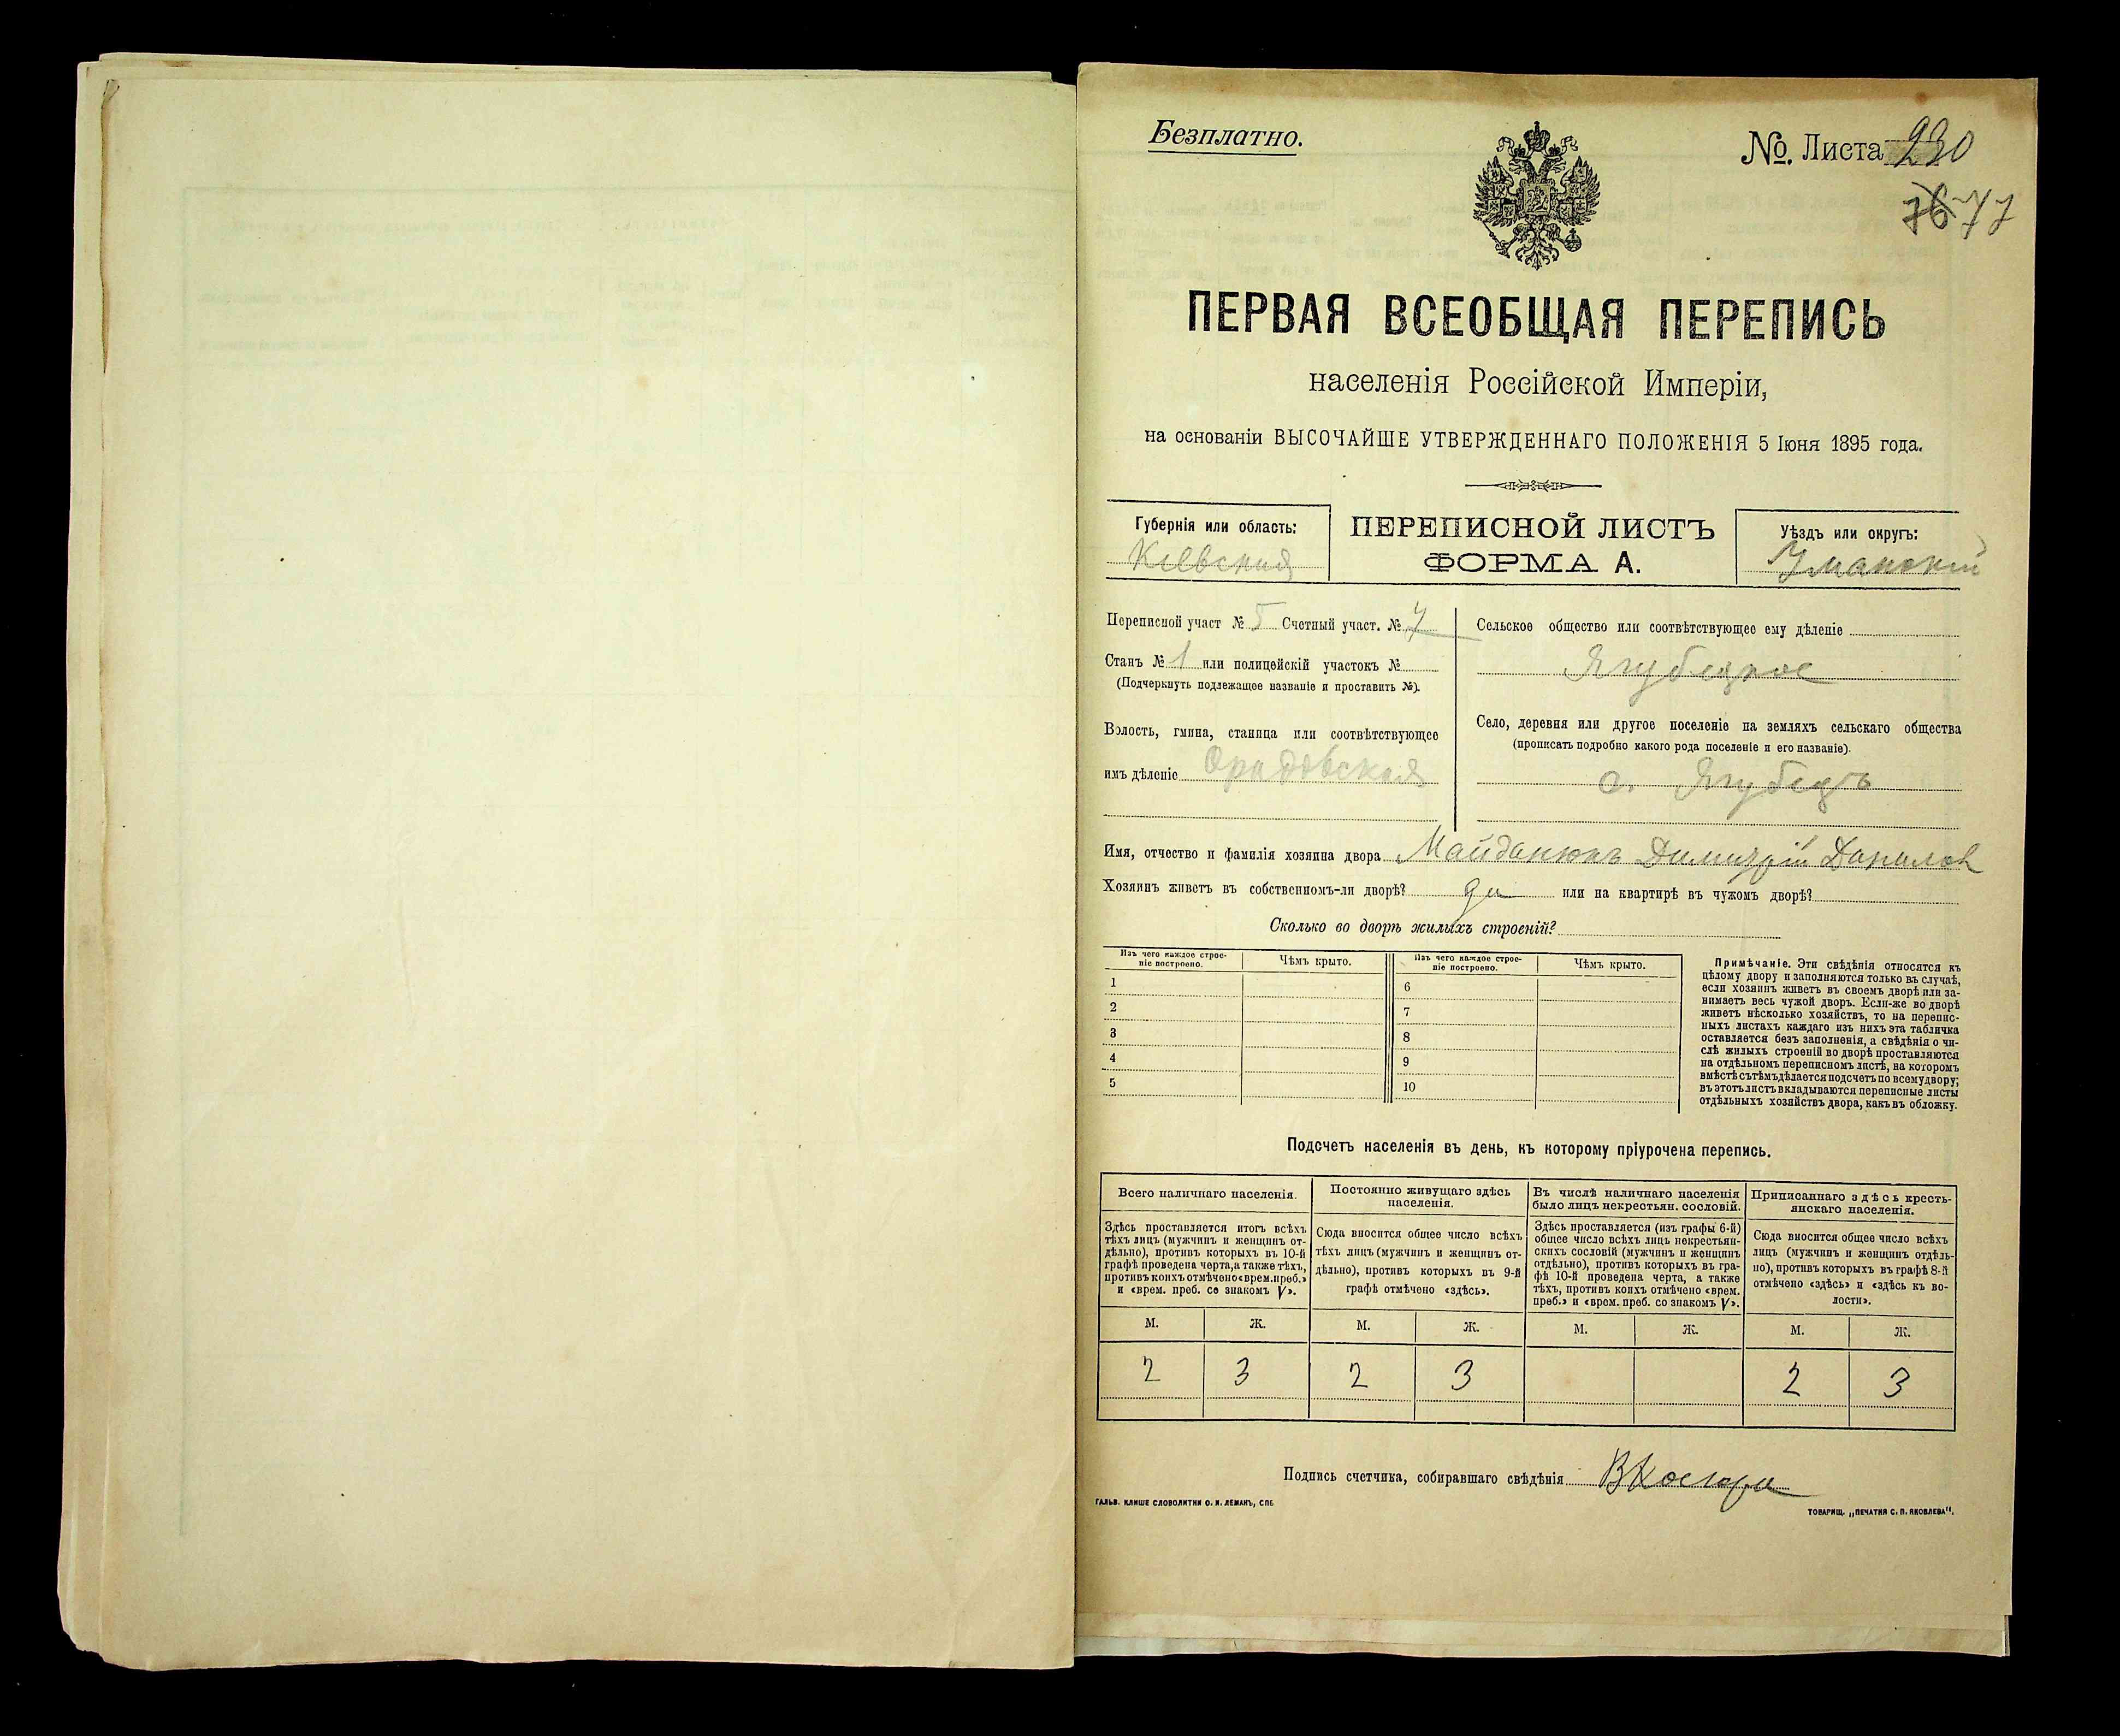 Безплатно.
№. Листа 230
76 77
ПЕРВАЯ ВСЕОБЩАЯ ПЕРЕПИСЬ
населенія Россійской Имперіи,
на основаніи ВЫСОЧАЙШЕ УТВЕРЖДЕННАГО ПОЛОЖЕНІЯ 5 Іюня 1895 года.
Губернія или область:
Кіевская
ПЕРЕПИСНОЙ ЛИСТЪ
ФОРМА А.
Уѣздъ или округъ:
Уманскій
Переписной участ № 5 Счетный участ. № 7
Станъ № 1 или полицейскій участокъ №
(Подчеркнуть подлежащее названіе и проставить №).
Волость, гмина, станица или соотвѣтствующее
имъ дѣленіе Орадовская
Сельское общество или соотвѣтствующее ему дѣленіе
Ягубецкое
Село, деревня или другое поселеніе на земляхъ сельскаго общества
(прописать подробно какого рода поселеніе и его названіе).
с. Ягубецъ
Имя, отчество и фамилія хозяина двора Майданюкъ Димитрій Данилов
Хозяинъ живетъ въ собственномъ-ли дворѣ? да или на квартирѣ въ чужомъ дворѣ?
Сколько во дворѣ жилыхъ строеній?
Изъ чего каждое строе-
ніе построено.
Чѣмъ крыто.
Изъ чего каждое строе-
ніе построено.
Чѣмъ крыто.
1
2
3
4
5
6
7
8
9
10
Примѣчаніе. Эти свѣдѣнія относятся къ
цѣлому двору и заполняются только въ случаѣ,
если хозяинъ живетъ въ своемъ дворѣ или за-
нимаетъ весь чужой дворъ. Если-же во дворѣ
живетъ нѣсколько хозяйствъ, то на перепис-
ныхъ листахъ каждаго изъ нихъ эта табличка
оставляется безъ заполненія, а свѣдѣнія о чи-
слѣ жилыхъ строеній во дворѣ проставляются
на отдѣльномъ переписномъ листѣ, на которомъ
вмѣстѣ съ тѣмъ дѣлается подсчетъ по всему двору;
въ этотъ листъ вкладываются переписные листы
отдѣльныхъ хозяйствъ двора, какъ въ обложку.
Подсчетъ населенія въ день, къ которому пріурочена перепись.
Всего наличнаго населенія.
Здѣсь проставляется итогъ всѣхъ
тѣхъ лицъ (мужчинъ и женщинъ от-
дѣльно), противъ которыхъ въ 10-й
графѣ проведена черта, а также тѣхъ,
противъ коихъ отмѣчено «врем. преб.»
и «врем. преб. со знакомъ V».
Постоянно живущаго здѣсь
населенія.
Сюда вносится общее число всѣхъ
тѣхъ лицъ (мужчинъ и женщинъ от-
дѣльно), противъ которыхъ въ 9-й
графѣ отмѣчено «здѣсь».
Въ числѣ наличнаго населенія
было лицъ некрестьян. сословій.
Здѣсь проставляется (изъ графы 6-й)
общее число всѣхъ лицъ некрестьян-
скихъ сословій (мужчинъ и женщинъ
отдѣльно), противъ которыхъ въ гра-
фѣ 10-й проведена черта, а также
тѣхъ, противъ коихъ отмѣчено «врем.
преб.» и «врем. преб. со знакомъ V».
Приписаннаго здѣсь кресть-
янскаго населенія.
Сюда вносится общее число всѣхъ
лицъ (мужчинъ и женщинъ отдѣль-
но), противъ которыхъ въ графѣ 8-й
отмѣчено «здѣсь» и «здѣсь къ во-
лости».
М. Ж. М. Ж. М. Ж. М. Ж.
2 3 2 3 2 3
Подпись счетчика, собиравшаго свѣдѣнія
ГАЛЬВ. КЛИШЕ СЛОВОЛИТНИ О. И. ЛЕМАНЪ, СПБ
ТОВАРИЩ. „ПЕЧАТНЯ С. П. ЯКОВЛЕВА“.